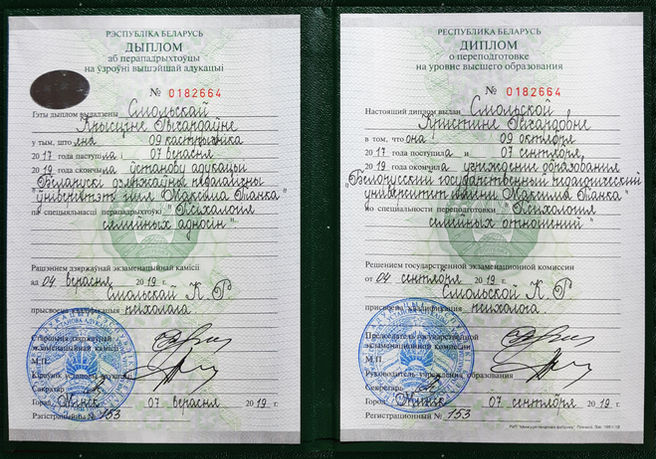 РЭСПУБЛІКА БЕЛАРУСЬ
ДЫПЛОМ
аб перападрыхтоўцы
на ўзроўні вышэйшай адукацыі
№ 0182664
Гэты дыплом выдадзены Смольскай
Крысціне Рычардаўне
у тым, што яна 09 кастрычніка
2017 паступіла і 07 верасня
2019 скончыла ўстанову адукацыі
"Беларускі дзяржаўны педагагічны
універсітэт імя Максіма Танка"
па спецыяльнасці перападрыхтоўкі "Псіхалогія
сямейных адносін"
Рашэннем дзяржаўнай экзаменацыйнай камісіі
ад 04 верасня 2019 г.
Смольскай К. Р
прысвоена кваліфікацыя псіхолага
Старшыня дзяржаўнай
экзаменацыйнай камісіі
М.П.
Кіраўнік установы адукацыі
Сакратар
Горад Мінск 07 верасня 2019 г.
Рэгістрацыйны № 153
РЕСПУБЛИКА БЕЛАРУСЬ
ДИПЛОМ
о переподготовке
на уровне высшего образования
№ 0182664
Настоящий диплом выдан Смольской
Кристине Ричардовне
в том, что она 09 октября
2017 поступила и 07 сентября
2019 окончила учреждение образования
"Белорусский государственный педагогический
университет имени Максима Танка"
по специальности переподготовки "Психология
семейных отношений"
Решением государственной экзаменационной комиссии
от 04 сентября 2019 г.
Смольской К. Р
присвоена квалификация психолога
Председатель государственной
экзаменационной комиссии
М.П.
Руководитель учреждения образования
Секретарь
Город Минск 07 сентября 2019 г.
Регистрационный № 153